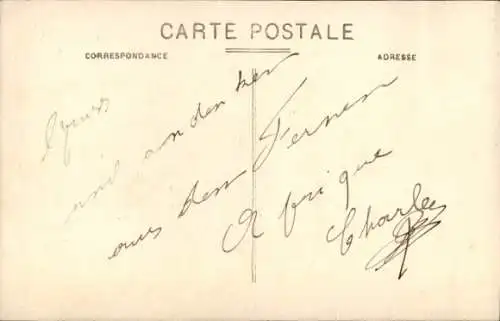 CARTE POSTALE
CORRESPONDANCE
ADRESSE
und andenken
aus dem Fernen
Afrique
Charles